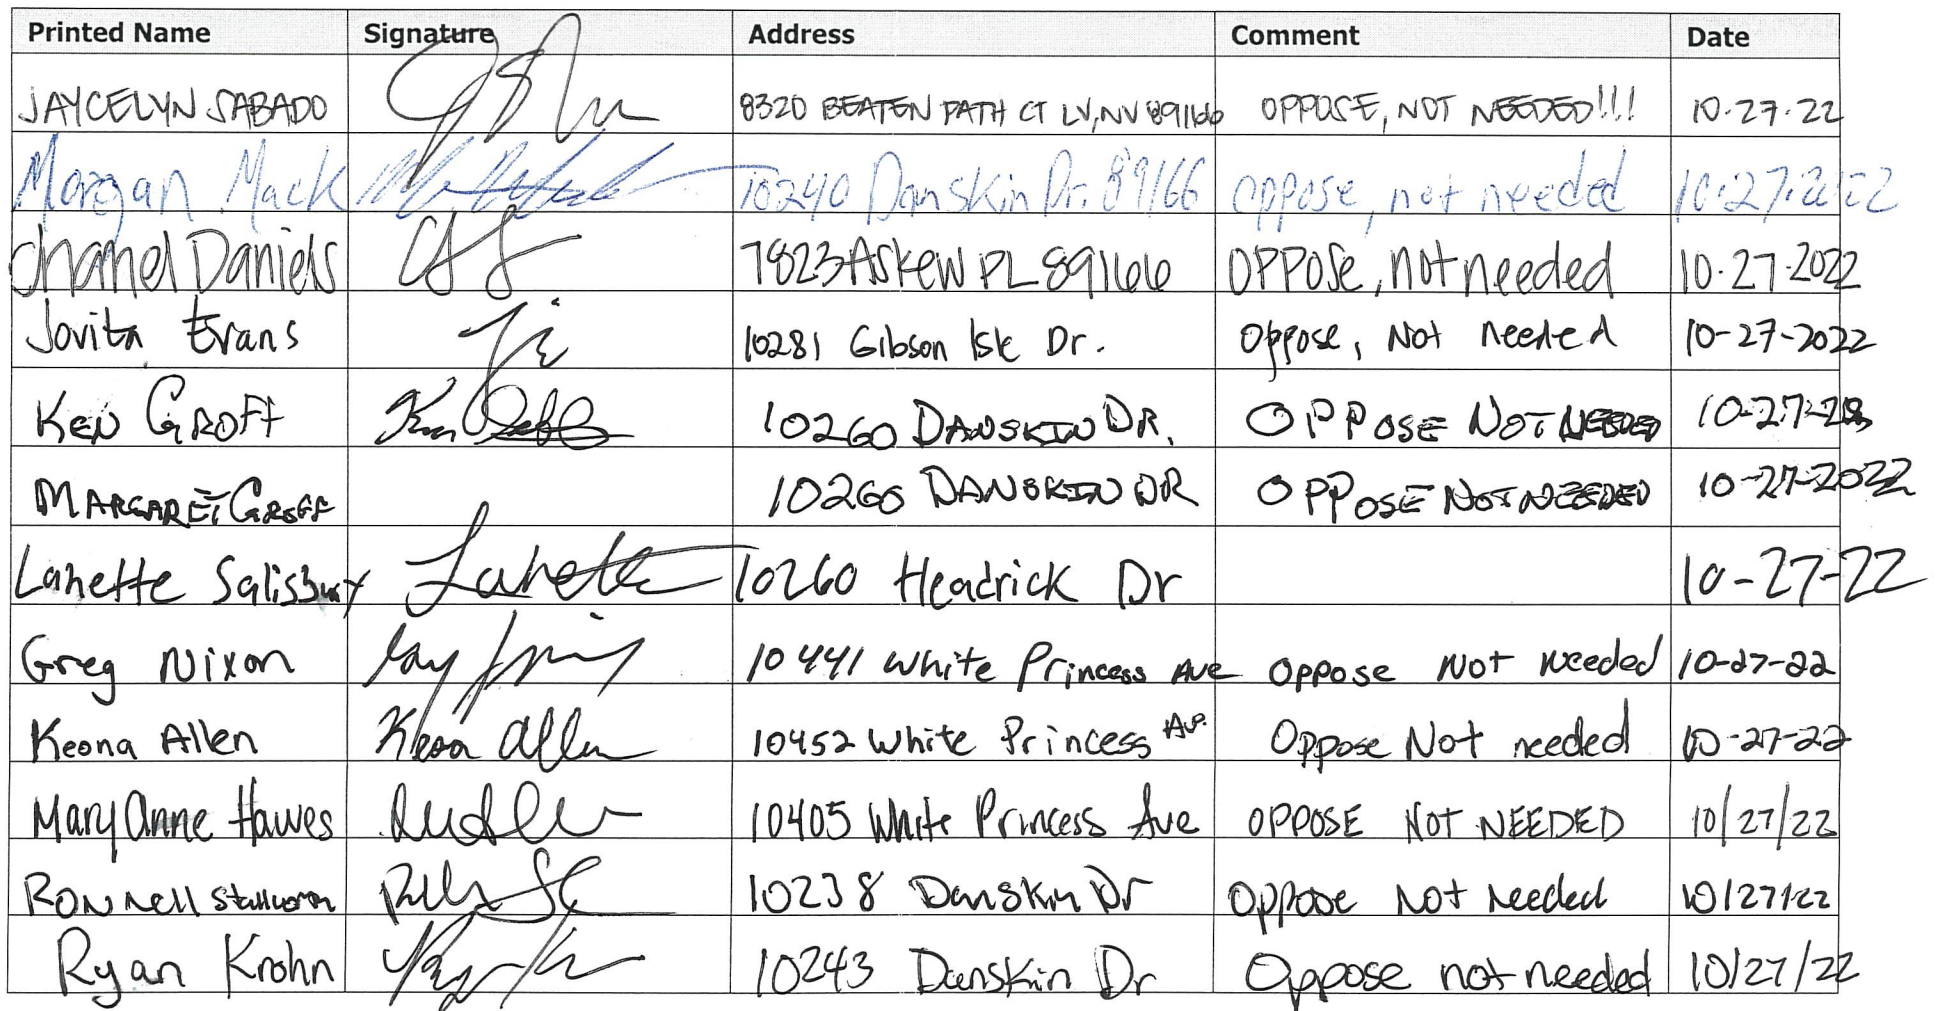 Printed Name Signature Address Comment Date
JAYCELYN SABADO 8320 BEATEN PATH CT LV, NV 89166 OPPOSE, NOT NEEDED!!! 10.27.22
Morgan Mack 10240 Danskin Dr. 89166 oppose, not needed 10.27.2022
Chanel Daniels 7823 Askew PL 89166 OPPOSe, not needed 10.27.2022
Jovita Evans 10281 Gibson Isle Dr. Oppose, Not needed 10-27-2022
KEN GROFF 10260 DANSKIN DR. OPPOSE NOT NEEDED 10-27-
MARGARET GROFF 10260 DANSKIN DR OPPOSE NOT NEEDED 10-27-2022
Lanette Salisbury Lanette 10260 Headrick Dr 10-27-22
Greg Nixon 10441 White Princess Ave Oppose Not Needed 10-27-22
Keona Allen Keona Allen 10452 White Princess Av. Oppose Not needed 10-27-22
Mary Anne Hawes 10405 White Princess Ave OPPOSE NOT NEEDED 10/27/22
RONNell 10238 Danskin Dr Oppose Not Needed 10/27/22
Ryan Krohn 10243 Danskin Dr Oppose not needed 10/27/22